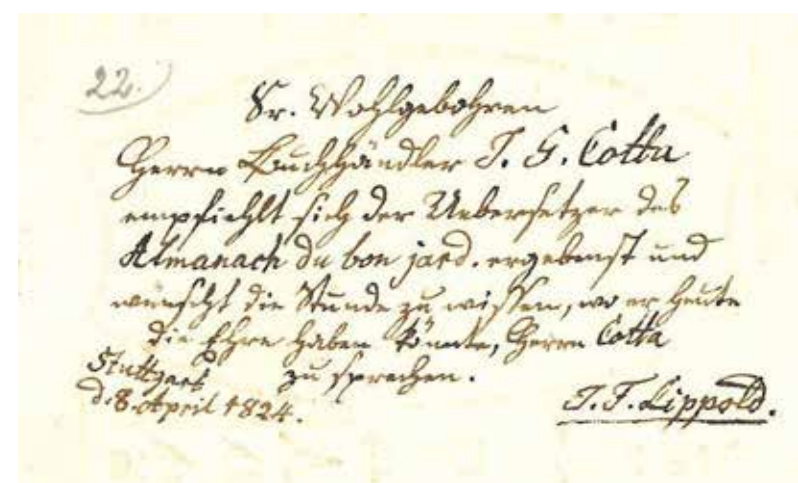 22.
Sr. Wohlgebohren
Herrn Buchhändler J. G. Cotta
empfiehlt sich der Uebersetzer des
Almanach du bon jard. ergebenst und
wünscht die Stunde zu wissen, wo er heute
die Ehre haben könnte, Herrn Cotta
zu sprechen.
Stuttgart
d. 8. April 1824.
J. F. Lippold.